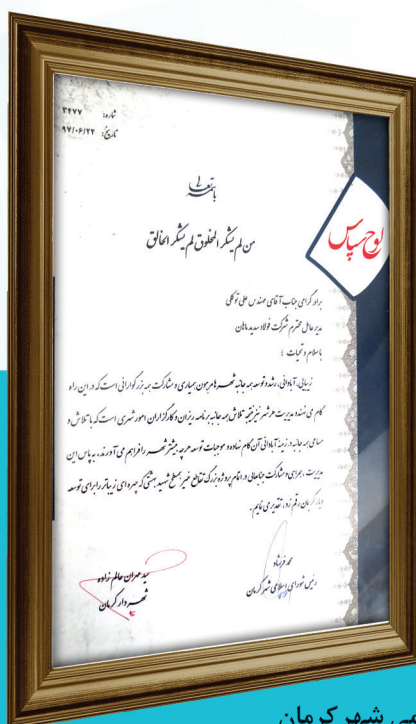 شماره: ۳۴۷۷
تاریخ: ۹۷/۰۶/۲۲
باسمه تعالی
لوح سپاس
من لم یشکر المخلوق لم یشکر الخالق
برادر گرامی جناب آقای مهندس علی توکلی
مدیر عامل محترم شرکت فولاد سدید ماهان
با سلام و تحیات ؛
زیبایی، آبادانی، رشد و توسعه همه جانبه شهرها مرهون همیاری و مشارکت همه بزرگوارانی است که در این راه
گام می نهند و مدیریت هر شهر نیز نتیجه تلاش همه جانبه برنامه ریزان و کارگزاران امور شهری است که با تلاش و
مساعی همه جانبه در زمینه آبادانی آن گام نهاده و موجبات توسعه هر چه بیشتر شهر را فراهم می آورند، به پاس این
مدیریت، همراهی و مشارکت جنابعالی در اتمام پروژه بزرگ تقاطع غیر همسطح شهید بهشتی که چهره ای زیباتر را برای توسعه
دیار کریمان رقم زد، تقدیر می نمایم.
محمد فرشاد
رئیس شورای اسلامی شهر کرمان
سید مهران عالم زاده
شهردار کرمان
شهر کرمان